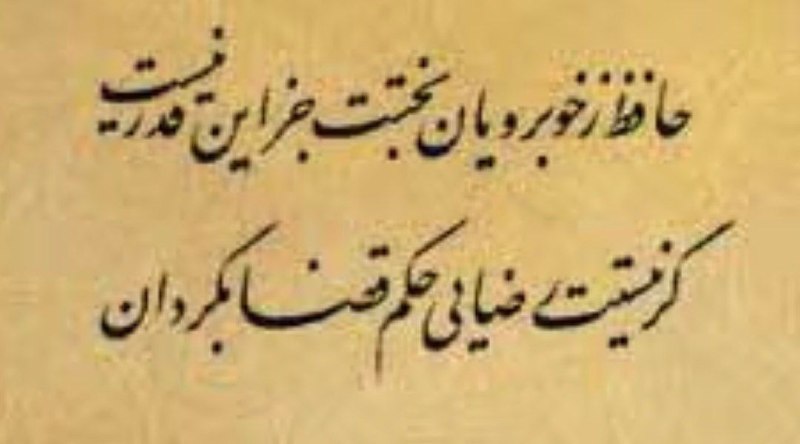 حافظ ز خوبرویان بختت جز این قدر نیست
گر نیستت رضایی حکم قضا بگردان